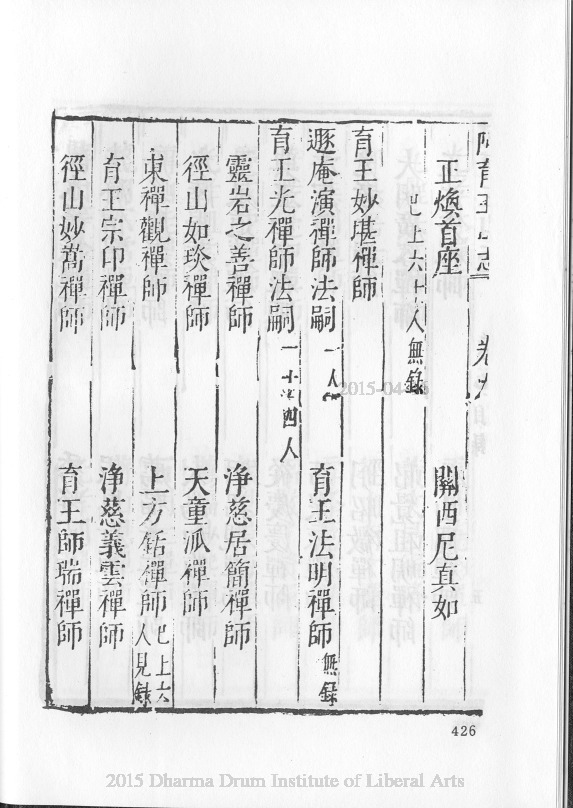 阿育王山志 卷六
正煥首座 關西尼真如
已上六十人無錄
育王妙堪禪師
遯庵演禪師法嗣一人 育王法明禪師無錄
育王光禪師法嗣一十四人
靈岩之善禪師 淨慈居簡禪師
徑山如琰禪師 天童派禪師
東禪觀禪師 上方銛禪師已上六人見錄
育王宗印禪師 淨慈義雲禪師
徑山妙嵩禪師 育王師瑞禪師
426
2015-04-
2015 Dharma Drum Institute of Liberal Arts